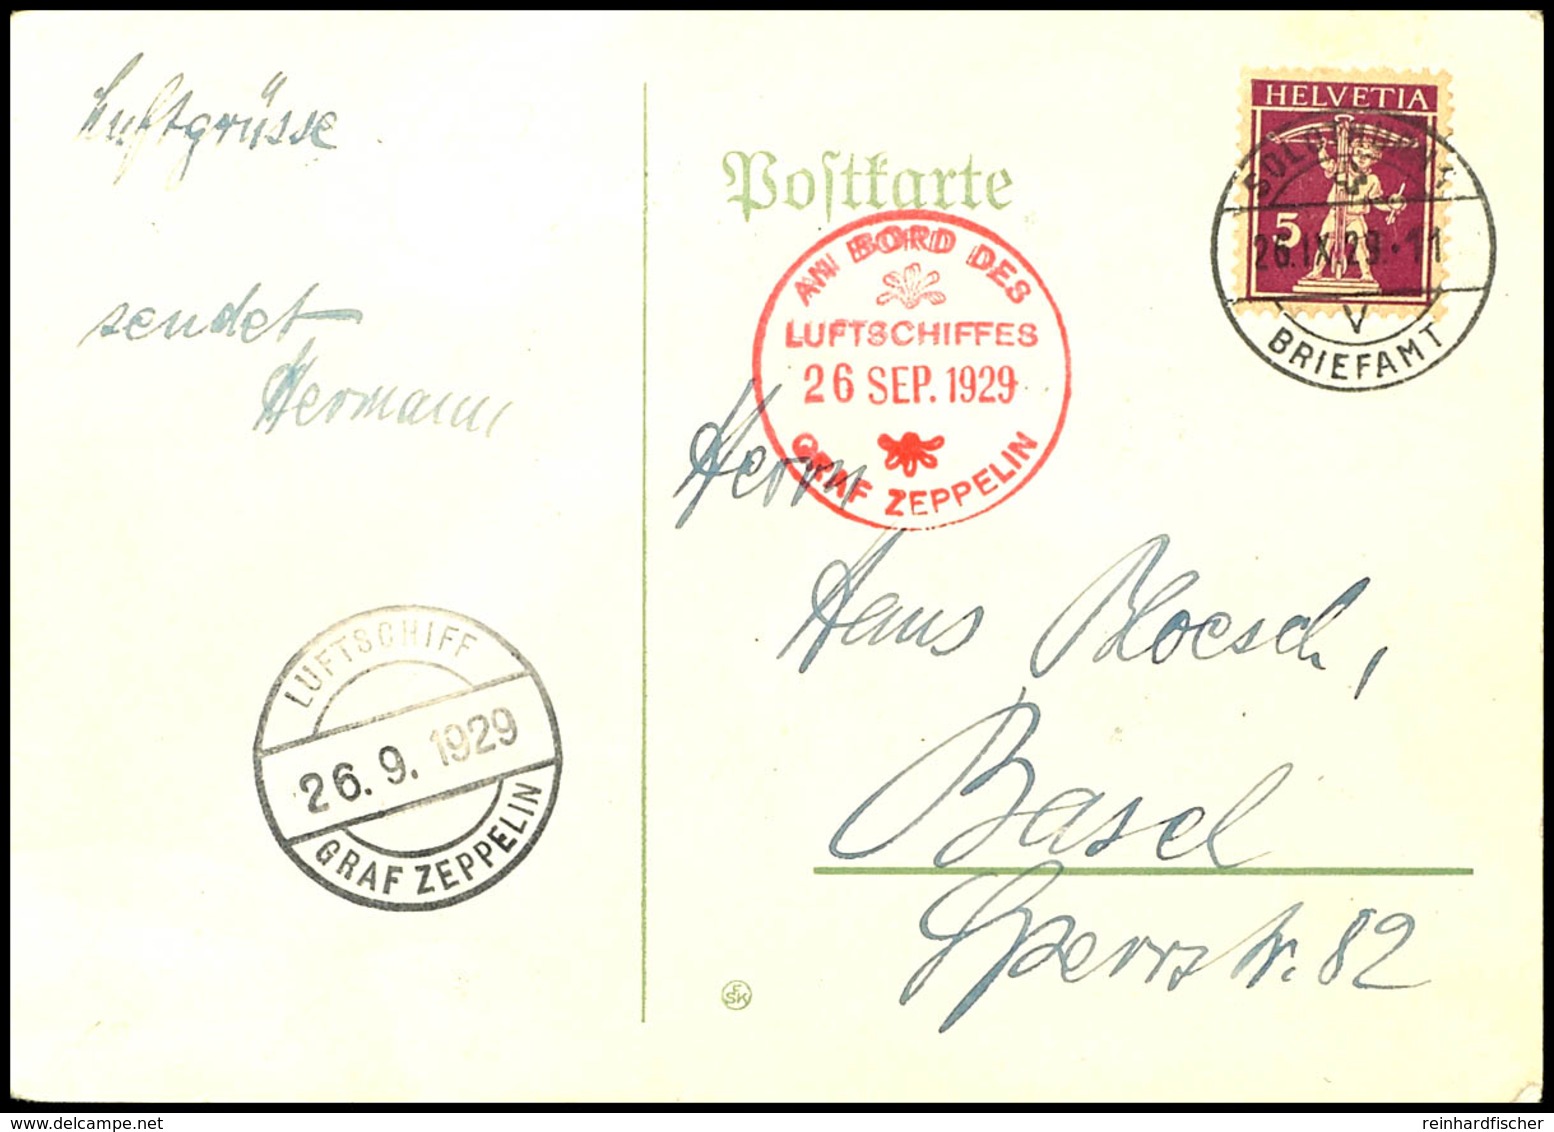 Luftgrüsse
sendet
Hermann
LUFTSCHIFF
26.9.1929
GRAF ZEPPELIN
Postkarte
AN BORD DES
LUFTSCHIFFES
26 SEP. 1929
GRAF ZEPPELIN
HELVETIA
5
SOLOTHURN 1
26.IX.29.-11
V
BRIEFAMT
Herrn
Hans Bloesch,
Basel
Sperrstr. 82
FSK
reinhardfischer